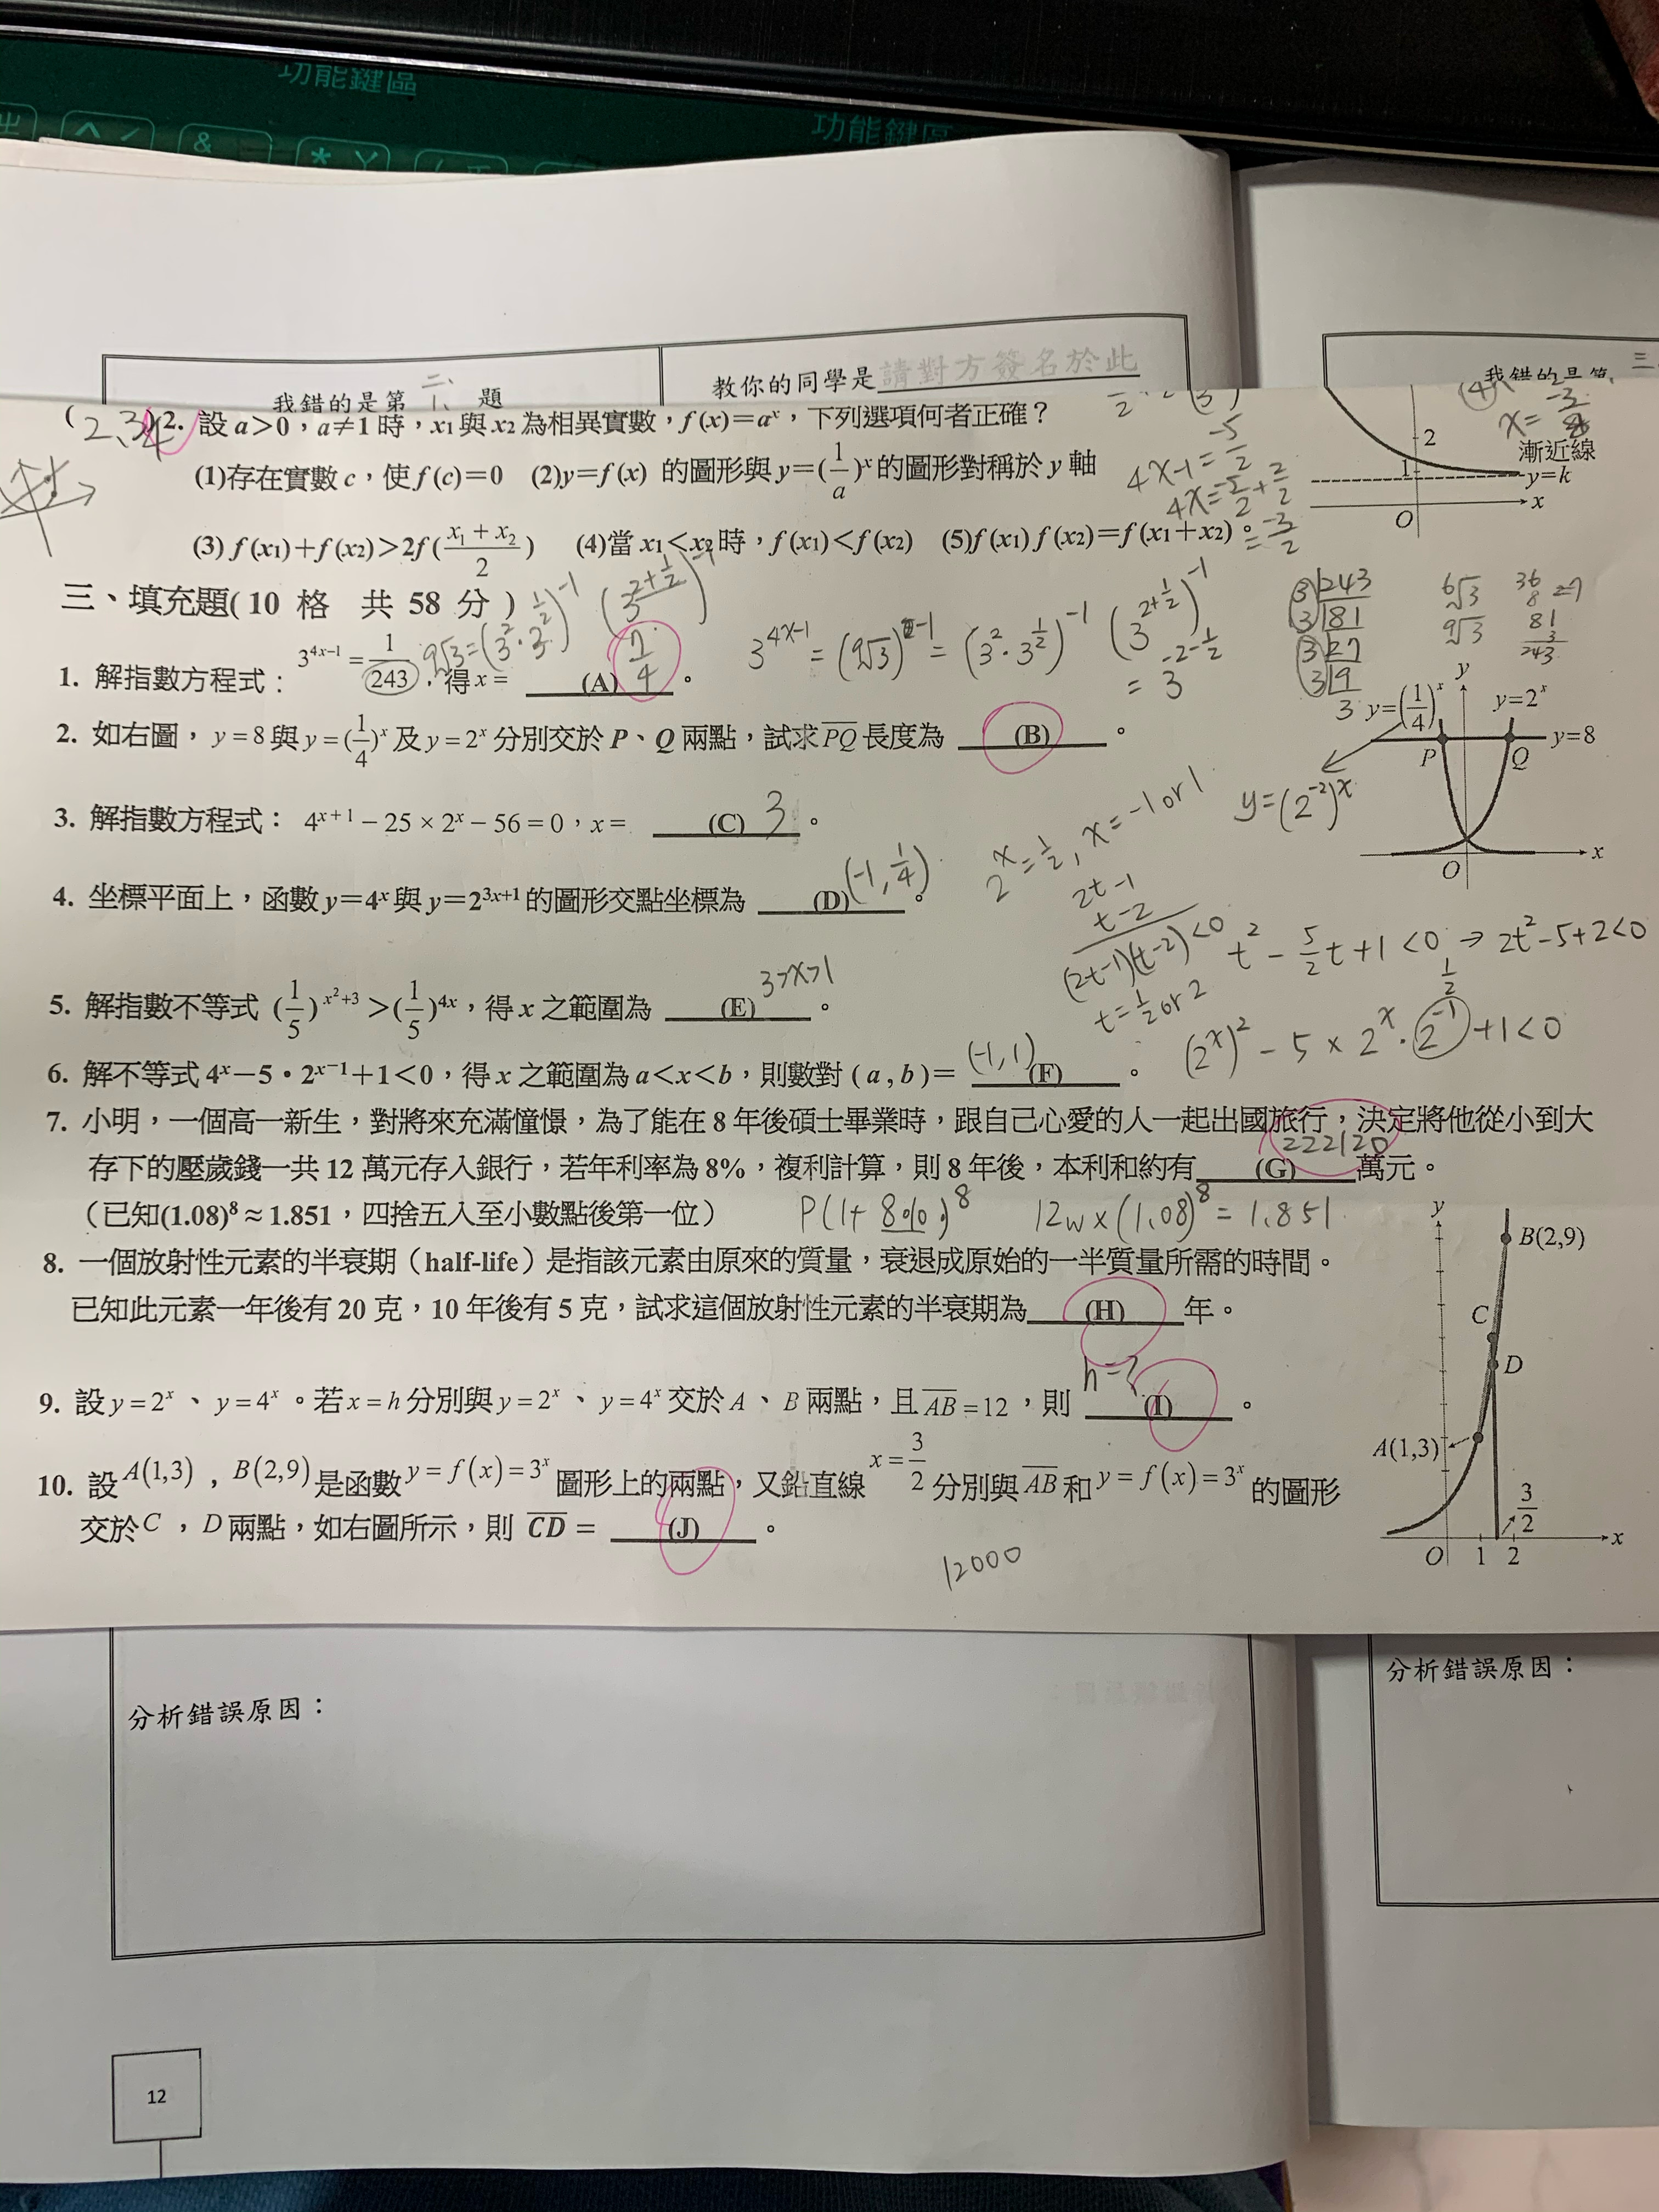 功能鍵區
功能鍵區
我錯的是第 二、1、 題
教你的同學是請對方簽名於此
我錯的是第 三
( 2,3,4 )2. 設 a>0,a≠1 時,x₁ 與 x₂ 為相異實數,f(x)=aˣ,下列選項何者正確?
(1)存在實數 c,使 f(c)=0 (2)y=f(x) 的圖形與 y=(1/a)ˣ 的圖形對稱於 y 軸
(3) f(x₁)+f(x₂)>2f((x₁+x₂)/2) (4)當 x₁<x₂ 時,f(x₁)<f(x₂) (5)f(x₁) f(x₂)=f(x₁+x₂)。
4x-1=-5/2
4x=-5/2+2/2
=-3/2
2
1
漸近線
y=k
x
O
三、填充題(10 格 共 58 分)
9√3=(3²·3^(1/2))⁻¹ (3^(2+1/2))⁻¹
3^(4x-1)=(9√3)⁻¹=(3²·3^(1/2))⁻¹ (3^(2+1/2))⁻¹
=3^(-2-1/2)
3|243
3|81
3|27
3|9
3
6√3
9√3
81
3
243
1. 解指數方程式: 3^(4x−1)=1/243,得 x= (A) 7/4 。
2. 如右圖, y=8 與 y=(1/4)ˣ 及 y=2ˣ 分別交於 P、Q 兩點,試求 PQ 長度為 (B) 。
y=(1/4)ˣ
y
y=2ˣ
P
Q
y=8
O
x
y=(2⁻²)ˣ
3. 解指數方程式: 4^(x+1)−25×2ˣ−56=0,x= (C) 3 。
4. 坐標平面上,函數 y=4ˣ 與 y=2^(3x+1) 的圖形交點坐標為 (D) (-1,1/4) 。
2ˣ=1/2, x=-1 or 1
2t-1
t-2
(2t-1)(t-2)<0
t=1/2 or 2
t²-5/2t+1<0 → 2t²-5+2<0
5. 解指數不等式 (1/5)^(x²+3)>(1/5)^(4x),得 x 之範圍為 (E) 3>x>1 。
(2ˣ)²-5×2ˣ·2⁻¹+1<0
1/2
6. 解不等式 4ˣ−5·2^(x−1)+1<0,得 x 之範圍為 a<x<b,則數對 (a,b)= (-1,1) (F) 。
7. 小明,一個高一新生,對將來充滿憧憬,為了能在 8 年後碩士畢業時,跟自己心愛的人一起出國旅行,決定將他從小到大
存下的壓歲錢一共 12 萬元存入銀行,若年利率為 8%,複利計算,則 8 年後,本利和約有 (G) 222120 萬元。
(已知(1.08)⁸≈1.851,四捨五入至小數點後第一位)
P(1+8%)⁸ 12w×(1.08)⁸=1.851
8. 一個放射性元素的半衰期(half-life)是指該元素由原來的質量,衰退成原始的一半質量所需的時間。
已知此元素一年後有 20 克,10 年後有 5 克,試求這個放射性元素的半衰期為 (H) 年。
9. 設 y=2ˣ、y=4ˣ。若 x=h 分別與 y=2ˣ、y=4ˣ 交於 A、B 兩點,且 AB=12,則 h=? (I) 。
10. 設 A(1,3),B(2,9) 是函數 y=f(x)=3ˣ 圖形上的兩點,又鉛直線 x=3/2 分別與 AB 和 y=f(x)=3ˣ 的圖形
交於 C,D 兩點,如右圖所示,則 CD= (J) 。
12000
y
B(2,9)
C
D
A(1,3)
3/2
O
1
2
x
分析錯誤原因:
分析錯誤原因:
12